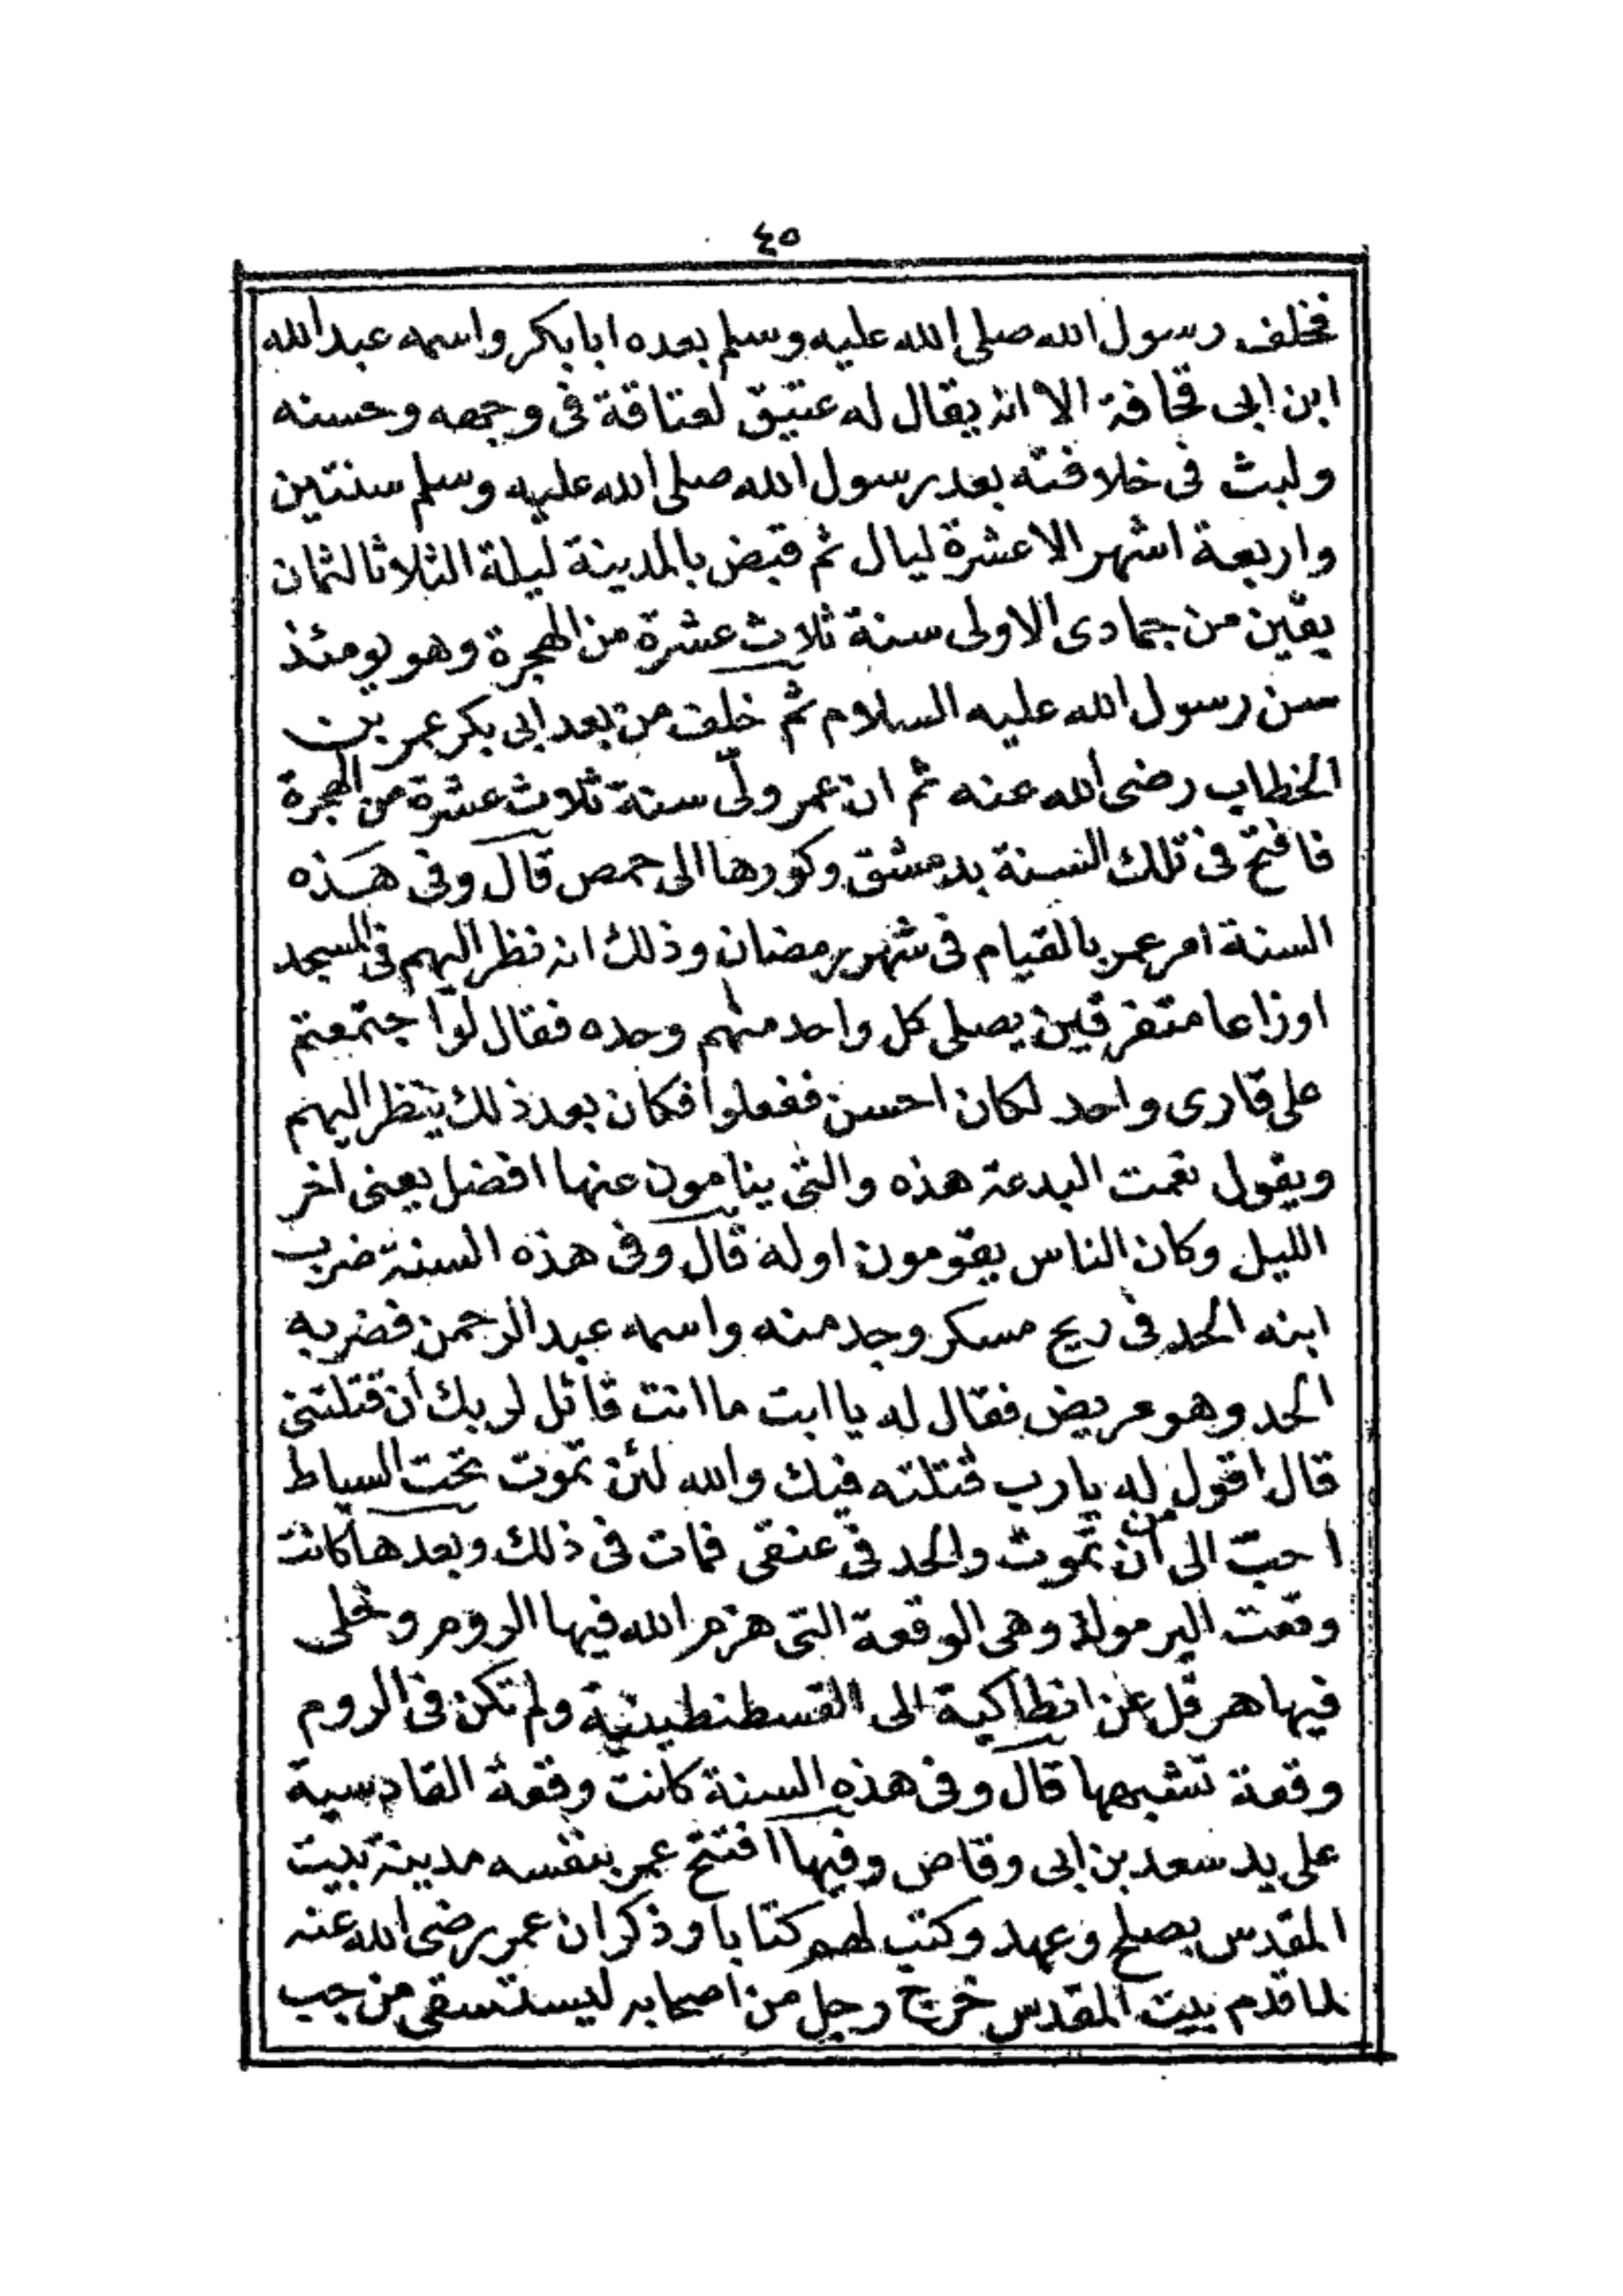 ٤٥
فخلف رسول الله صلى الله عليه وسلم بعده ابا بكر واسمه عبد الله
ابن ابى قحافة الا انه يقال له عتيق لعتاقة فى وجهه وحسنه
ولبث فى خلافته بعد رسول الله صلى الله عليه وسلم سنتين
واربعة اشهر الا عشرة ليال ثم قبض بالمدينة ليلة الثلاثا لثمان
بقين من جمادى الاولى سنة ثلاث عشرة من الهجرة وهو يومئذ
سن رسول الله عليه السلام ثم خلف من بعد ابى بكر عمر بن
الخطاب رضى الله عنه ثم ان عمر ولّى سنة ثلاث عشرة من الهجرة
فافتح فى تلك السنة بدمشق وكورها الى حمص قال وفى هذه
السنة امر عمر بالقيام فى شهر رمضان وذلك انه نظر اليهم فى المسجد
اوزاعا متفرقين يصلى كل واحد منهم وحده فقال لو اجتمعتم
على قارى واحد لكان احسن ففعلوا فكان بعد ذلك ينظر اليهم
ويقول نعمت البدعة هذه والتى ينامون عنها افضل يعنى اخر
الليل وكان الناس يقومون اوله قال وفى هذه السنة ضرب
ابنه الحد فى ريح مسكر وجد منه واسمه عبد الرحمن فضربه
الحد وهو مريض فقال له يا ابت ما انت قائل لربك ان قتلتنى
قال اقول له يارب قتلته فيك والله لئن تموت تحت السياط
احبّ الى من أن تموت والحد فى عنقى فمات فى ذلك وبعدها كانت
وقعت اليرموك وهى الوقعة التى هزم الله فيها الروم وخلى
فيها هرقل عن انطاكية الى القسطنطينية ولم تكن فى الروم
وقعة تشبهها قال وفى هذه السنة كانت وقعة القادسية
على يد سعد بن ابى وقاص وفيها افتتح عمر بنفسه مدينة بيت
المقدس بصلح وعهد وكتب لهم كتابا وذكر ان عمر رضى الله عنه
لما قدم بيت المقدس خرج رجل من اصحابه ليستسقى من جب